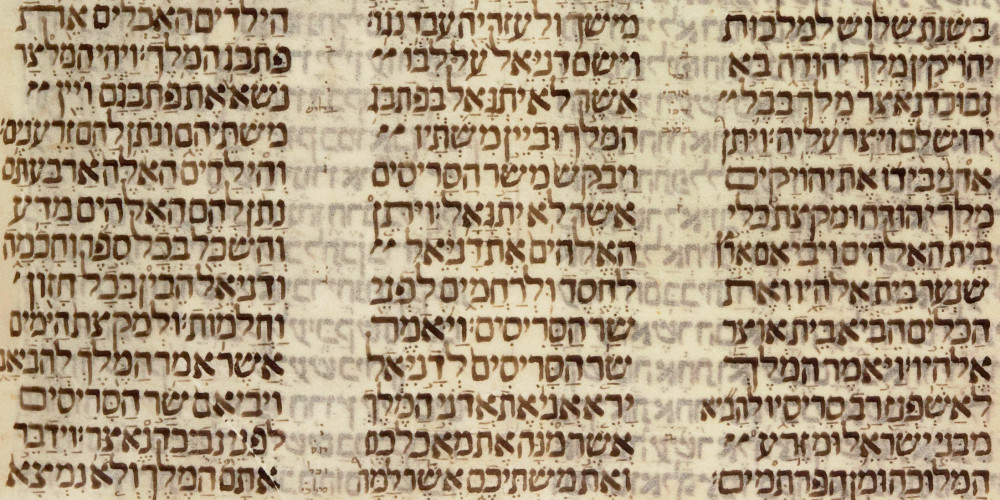 בשנת שלוש למלכות
יהויקים מלך יהודה בא
נבוכדנאצר מלך בבל
ירושלם ויצר עליה׃ ויתן
אדני בידו את יהויקים
מלך יהודה ומקצת כלי
בית האלהים ויביאם ארץ
שנער בית אלהיו ואת
הכלים הביא בית אוצר
אלהיו׃ ויאמר המלך
לאשפנז רב סריסיו להביא
מבני ישראל ומזרע
המלוכה ומן הפרתמים׃
מישך ולעזריה עבד נגו׃
וישם דניאל על לבו
אשר לא יתגאל בפתבג
המלך וביין משתיו
ויבקש משר הסריסים
אשר לא יתגאל׃ ויתן
האלהים את דניאל
לחסד ולרחמים לפני
שר הסריסים׃ ויאמר
שר הסריסים לדניאל
ירא אני את אדני המלך
אשר מנה את מאכלכם
ואת משתיכם אשר למה
הילדים האכלים את
פתבג המלך׃ ויהי המלצר
נשא את פתבגם ויין
משתיהם ונתן להם זרענים׃
והילדים האלה ארבעתם
נתן להם האלהים מדע
והשכל בכל ספר וחכמה
ודניאל הבין בכל חזון
וחלמות׃ ולמקצת הימים
אשר אמר המלך להביאם
ויביאם שר הסריסים
לפני נבכדנצר׃ וידבר
אתם המלך ולא נמצא